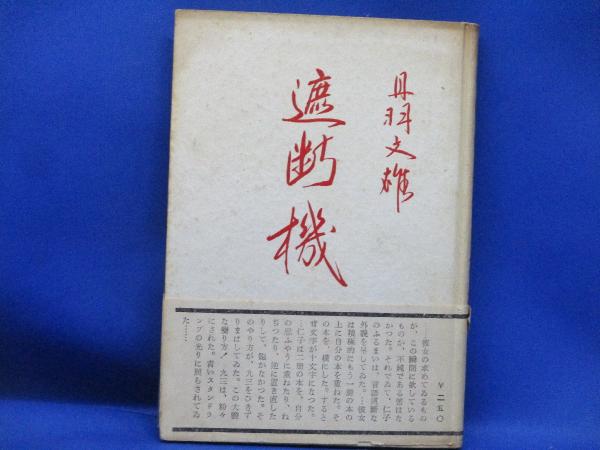 丹羽文雄
遮断機
¥二五〇
……彼女の求めてゐるもの
が、この瞬間に欲している
ものが、不純である筈はな
かつた。それでゐて、仁子
のふるまいは、言語道断な
外貌を呈してゐた。…彼女
は積極的にもう一冊の本の
上に自分の本を重ねた。そ
の本を、横にした。すると
背文字が十文字になつた。
…仁子は二冊の本を、自分
の思ふやうに重ねたり、ね
ぢつたり、逆に置き直した
りして、飽かなかつた。そ
のやり方が、九三をひきず
りまはしてゐた。この大胆
な嬲り方！九三は、粉々
にされた。青いスタンドラ
ンプの光りに照らされてゐ
た……